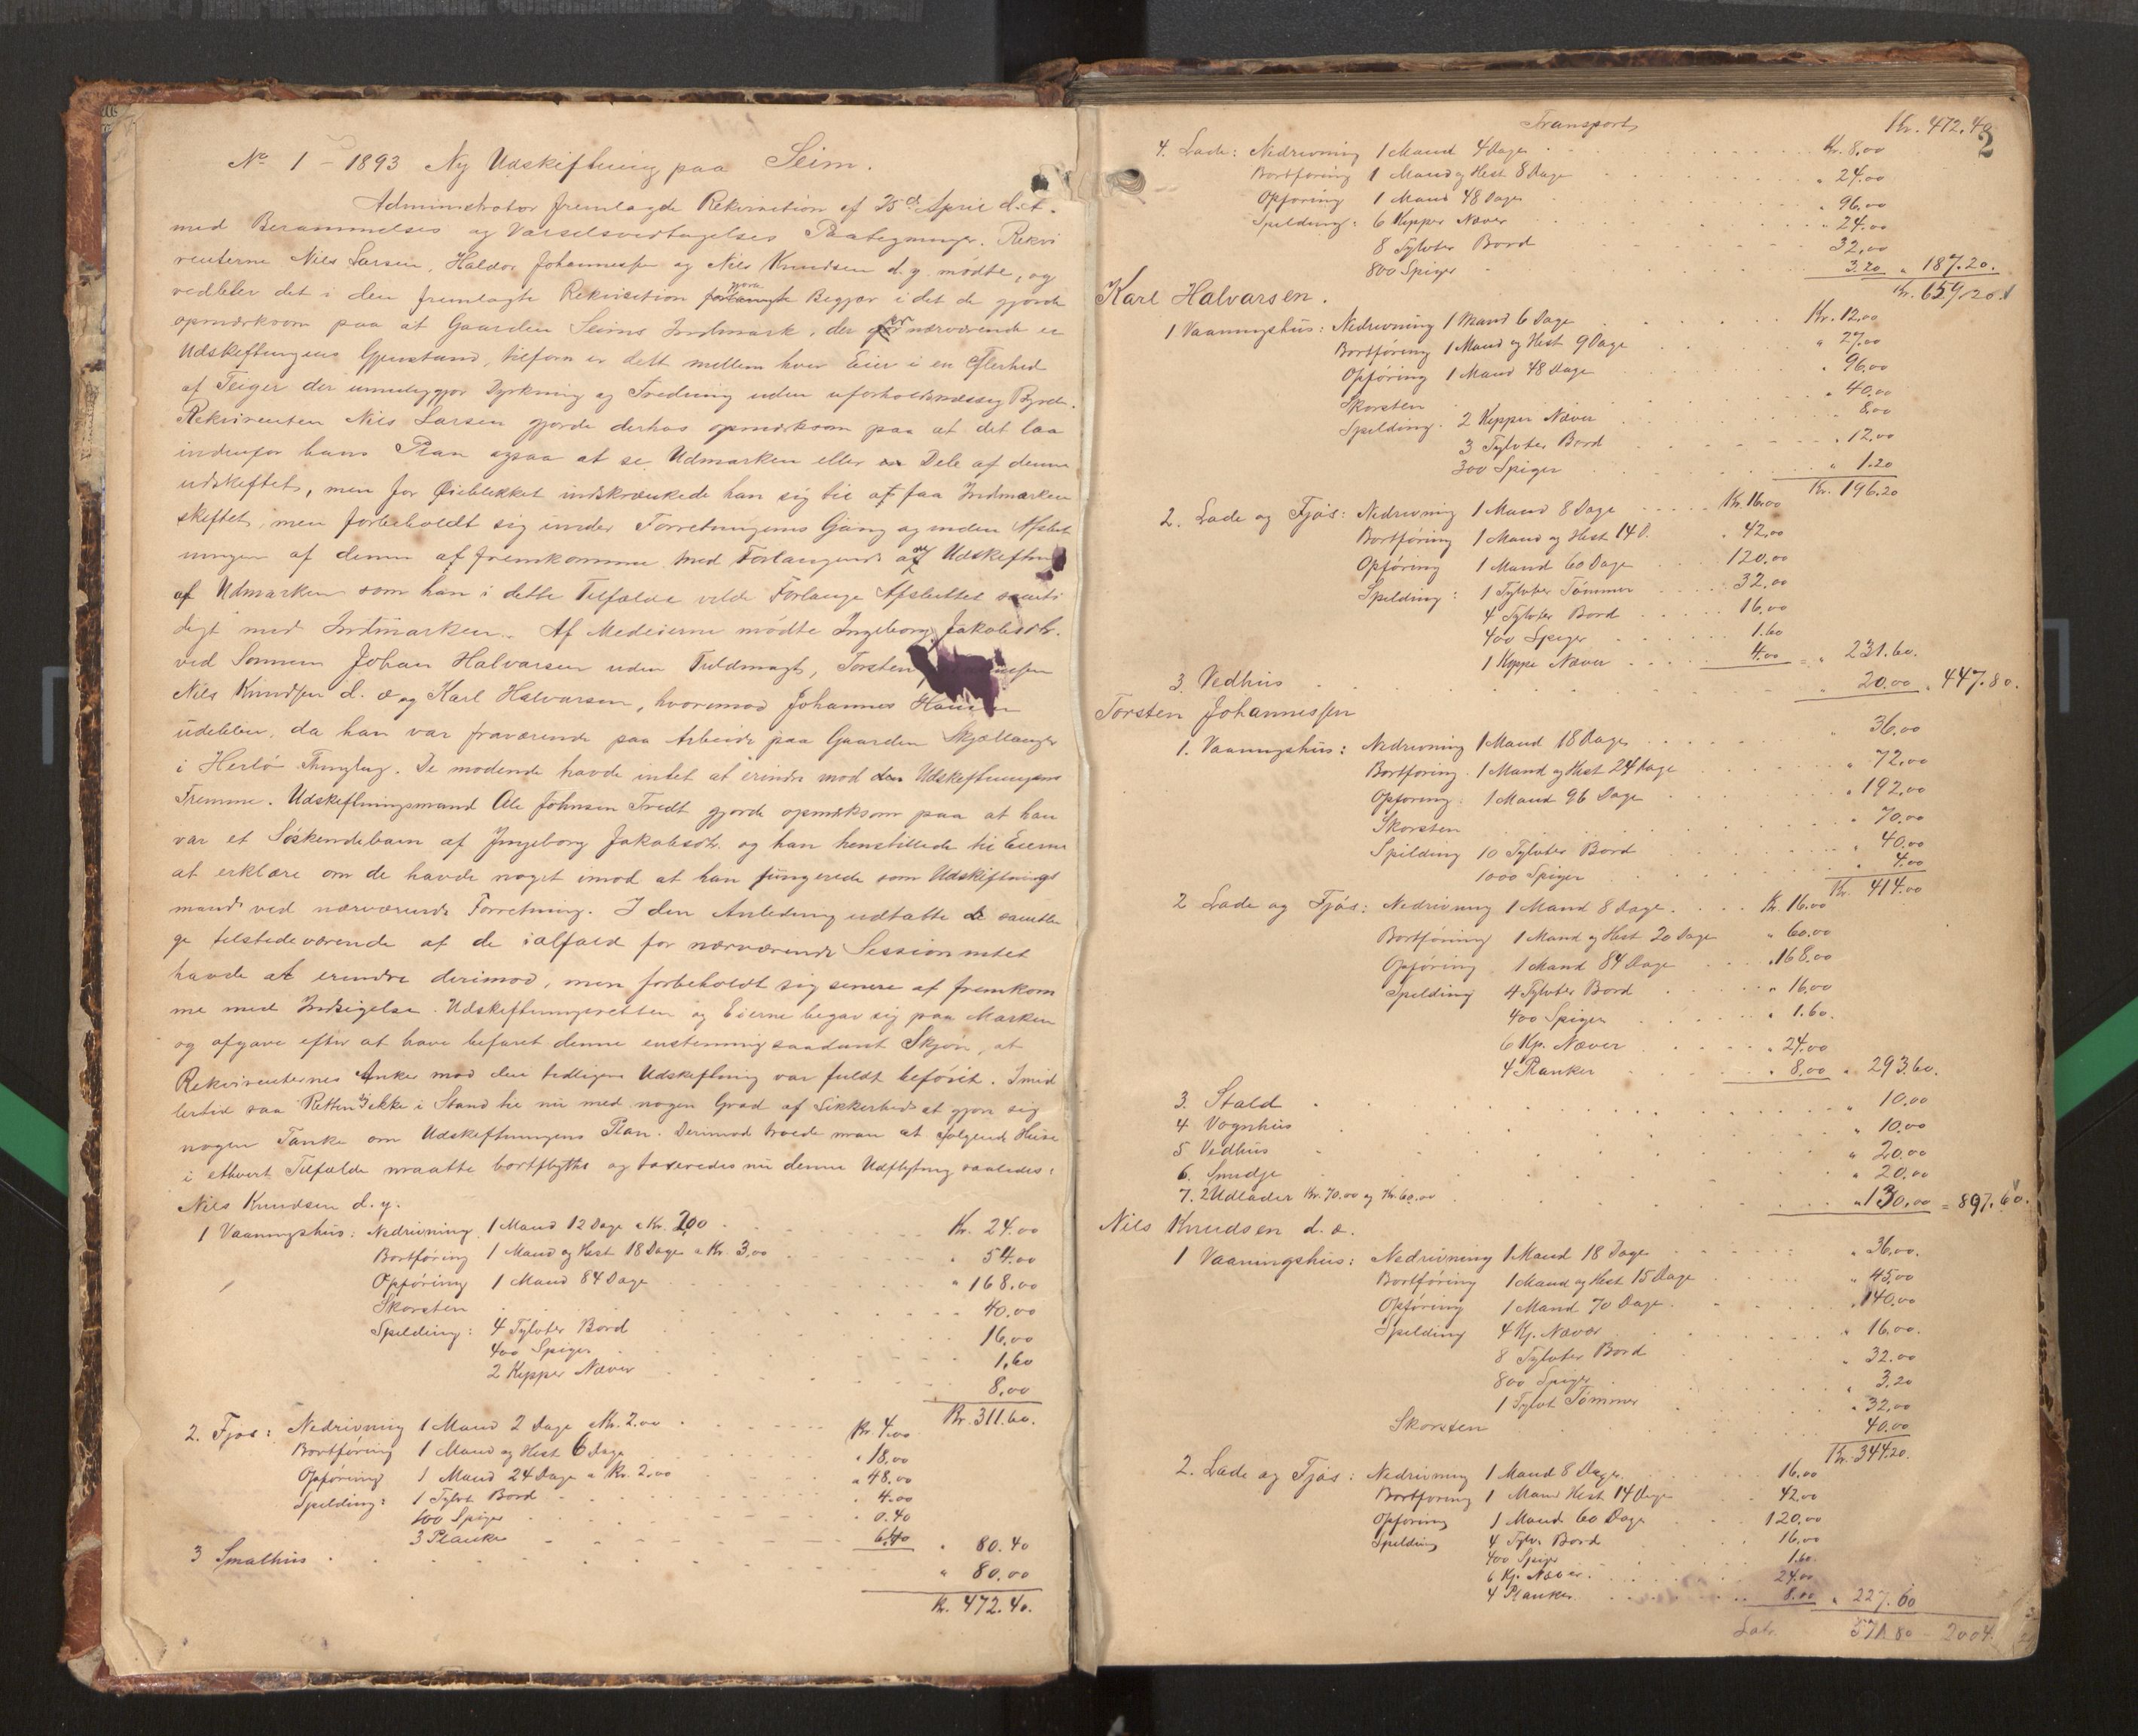 No 1 – 1893 Ny Udskiftning paa Seim.
Administrator fremlagde Rekvisition af 25de April d.A.
med Berammelses og Varselsvedtagelses Paategninger. Rekvi
renterne Nils Larsen, Haldor Johannessen og Nils Knudsen d.y. mødte, og
vedblev det i den fremlagte Rekvisition Begjær i det de gjorde
opmærksom paa at Gaarden Seims Indmark, der for nærværende er
Udskiftningens Gjenstand, tilforn er delt mellem hver Eier i en Flerhed
af Teiger der umuliggjør Dyrkning og Fredning uden uforholdsmæssig Byrde.
Rekvirenten Nils Larsen gjorde derhos opmærksom paa at det laa
indenfor hans Plan ogsaa at se Udmarken eller Dele af denne
udskiftet, men for Øieblikket indskrænkede han sig til at faa Indmarken
skiftet, men forbeholdt sig under Forretningens Gang og inden Afslut
ningen af denne at fremkomme med Forlangende om Udskiftning
af Udmarken som han i dette Tilfælde vilde Forlange Afsluttet samti
digt med Indmarken. Af Medeierne mødte Ingeborg Jakobsdtr.
ved Sønnen Johan Halvarsen uden Fuldmagt, Torsten
Nils Knudsen d. æ og Karl Halvarsen, hvorimod Johannes Hansen
udeblev, da han var fraværende paa Arbeide paa Gaarden Skjællanger
i Herlö Thinglag. De mødende havde intet at erindre mod den Udskiftningens
Fremme. Udskiftningsmand Ole Johnsen Tvedt gjorde opmærksom paa at han
var et Söskendebarn af Ingeborg Jakobsdtr. og han henstillede til Eierne
at erklære om de havde noget imod at han fungerede som Udskiftnings
mand ved nærværende Forretning. I den Anledning udtalte de samtli
ge tilstedeværende at de ialfald for nærværende Session intet
havde at erindre derimod, men forbeholdt sig senere at fremkom
me med Indsigelse. Udskiftningsretten og Eierne begav sig paa Marken
og afgave efter at have befaret denne enstemmig saadant Skjøn, at
Rekvirenternes Anke mod den tidligere Udskiftning var fuldt beföiet. Imid
lertid saa Retten sig ikke i Stand til nu med nogen Grad af Sikkerhed at gjøre sig
nogen Tanke om Udskiftningens Plan. Derimod troede man at følgende Huse
i ethvert Tilfælde maatte bortflyttes og taxeredes nu denne Udflytning saaledes:
Nils Knudsen d.y.
1 Vaaningshus: Nedrivning 1 Mand 12 Dage a Kr. 2,00 Kr. 24.00
Bortföring 1 Mand og Hest 18 Dage a Kr. 3,00 " 54.00
Opföring 1 Mand 84 Dage " 168.00
Skorsten 40.00
Spilding: 4 Tylvter Bord 16.00
400 Spiger 1.60
2 Kipper Næver 8.00
Kr. 311.60.
2. Fjøs: Nedrivning 1 Mand 2 Dage a Kr. 2.00 Kr. 4.00
Bortföring 1 Mand og Hest 6 Dage " 18.00
Opföring 1 Mand 24 Dage a Kr. 2.00 " 48.00
Spilding: 1 Tylvt Bord " 4.00
100 Spiger " 0.40
3 Planke 6.00 " 80.40
3 Smalhus " 80.00
Kr. 472.40.
2
Transport Kr. 472.40
4. Lade: Nedrivning 1 Mand 4 Dage Kr. 8.00
Bortföring 1 Mand og Hest 8 Dage " 24.00
Opföring 1 Mand 48 Dage " 96.00
Spilding: 6 Kipper Næver " 24.00
8 Tylvter Bord 32.00
800 Spiger 3.20 " 187.20.
Kr. 659.20
Karl Halvarsen.
1 Vaaningshus: Nedrivning 1 Mand 6 Dage Kr. 12.00
Bortföring 1 Mand og Hest 9 Dage " 27.00
Opföring 1 Mand 48 Dage " 96.00
Skorsten " 40.00
Spilding: 2 Kipper Næver 8.00
3 Tylvter Bord " 12.00
300 Spiger " 1.20
Kr. 196.20
2. Lade og Fjös: Nedrivning 1 Mand 8 Dage Kr. 16.00
Bortföring 1 Mand og Hest 14 D. " 42.00
Opföring 1 Mand 60 Dage 120.00
Spilding: 1 Tylvter Tömmer 32.00
4 Tylvter Bord 16.00
400 Spiger 1.60
1 Kippe Næver 4.00 = " 231.60.
3. Vedhus " 20.00 " 447.80.
Torsten Johannessen
1. Vaaningshus: Nedrivning 1 Mand 18 Dage " 36.00
Bortföring 1 Mand og Hest 24 Dage " 72.00
Opföring: 1 Mand 96 Dage " 192.00
Skorsten " 70.00
Spilding 10 Tylvter Bord " 40.00
1000 Spiger " 4.00
Kr. 414.00
2 Lade og Fjös: Nedrivning 1 Mand 8 Dage Kr. 16.00
Bortföring 1 Mand og Hest 20 Dage " 60.00
Opföring 1 Mand 84 Dage " 168.00
Spilding 4 Tylvter Bord " 16.00
400 Spiger " 1.60.
6 Kp. Næver " 24.00
4 Planker " 8.00 " 293.60.
3. Stald " 10.00
4 Vognhus " 10.00
5 Vedhus " 20.00
6. Smidje " 20.00
7. 2 Udlader Kr. 70.00 og Kr. 60.00 " 130.00 = 897.60.
Nils Knudsen d. æ.
1 Vaaningshus: Nedrivning 1 Mand 18 Dage " 36.00.
Bortföring 1 Mand og Hest 15 Dage " 45.00
Opföring 1 Mand 70 Dage " 140.00
Spilding 4 Kp. Næver " 16.00.
8 Tylvter Bord " 32.00
800 Spiger " 3.20
1 Tylvt Tömmer " 32.00
Skorsten 40.00
Kr. 344.20.
2. Lade og Fjös: Nedrivning 1 Mand 8 Dage 16.00
Bortföring 1 Mand Hest 14 Dage 42.00
Opföring 1 Mand 60 Dage 120.00
Spilding 4 Tylv. Bord 16.00
400 Spiger 1.60.
6 Kp. Næver 24.00
4 Planker 8.00 " 227.60
Lat. 571.80 – 2004.